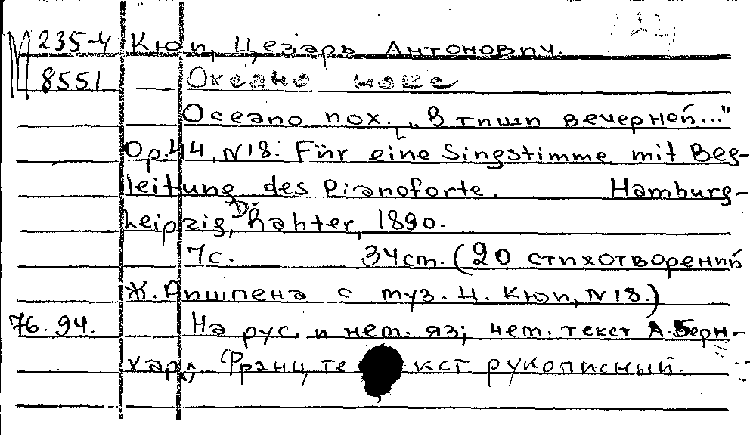 М 235-4 Кюи, Цезарь Антонович.
8551 Океано нокс
Oceano nox. „В тиши вечерней..."
Op. 44, N 18. Für eine Singstimme mit Beg-
leitung des Pianoforte. Hamburg-
Leipzig, D. Rahter, 1890.
7с. 34cm. (20 стихотворений
Ж. Ришпена с муз. Ц. Кюи, N 18.)
76.94. На рус. и нем. яз; нем. текст А. Берн-
хард, Франц. текст рукописный.